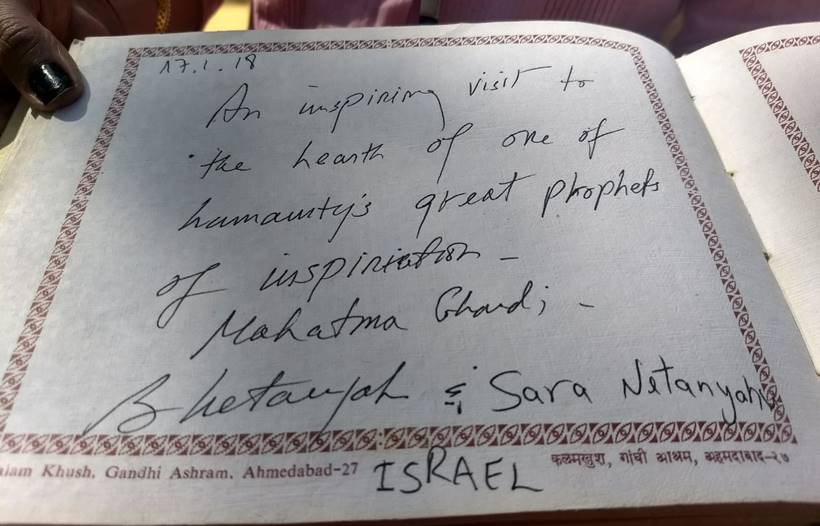 17.1.18
An inspiring visit to
the hearth of one of
humanity's great prophets
of inspiriation -
Mahatma Ghandi -
B Netanyah & Sara Netanyahu
alam Khush, Gandhi Ashram, Ahmedabad-27
ISRAEL
कलमखुश, गांधी आश्रम, अहमदाबाद-२७